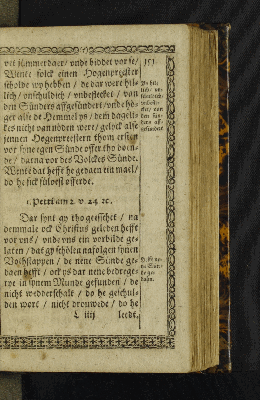 vet jümmerdaer / unde biddet vor se /
Wente solck einen Hogenprester
scholde wy hebben / de dar were hil-
lich / unschuldich / unbeflecket / van
den Sünders affgesündert / unde hö-
ger alse de Hemmel ys / dem dageli-
kes nicht van nöden were / gelyck alse
jennen Hogenpreestern thom ersten
vor syne egen Sünde offer tho doen-
de / darna vor des Volckes Sünde.
Wente dat hefft he gedaen ein mael /
do he sick sülvest offerde.
1. Petri am 2. v. 24. 2c.
Dar synt gy tho geesschet / na
demmale ock Christus geleden hefft
vor uns / unde uns ein vorbilde ge-
laten / dat gy schölen nafolgen synen
Vothstappen / de nene Sünde ge-
daen hefft / ock ys dar nene bedrege-
rye in synem Munde gefunden / de
nicht wedderschalt / do he geschul-
den wort / nicht drouwede / do he
L iiij
leedt,